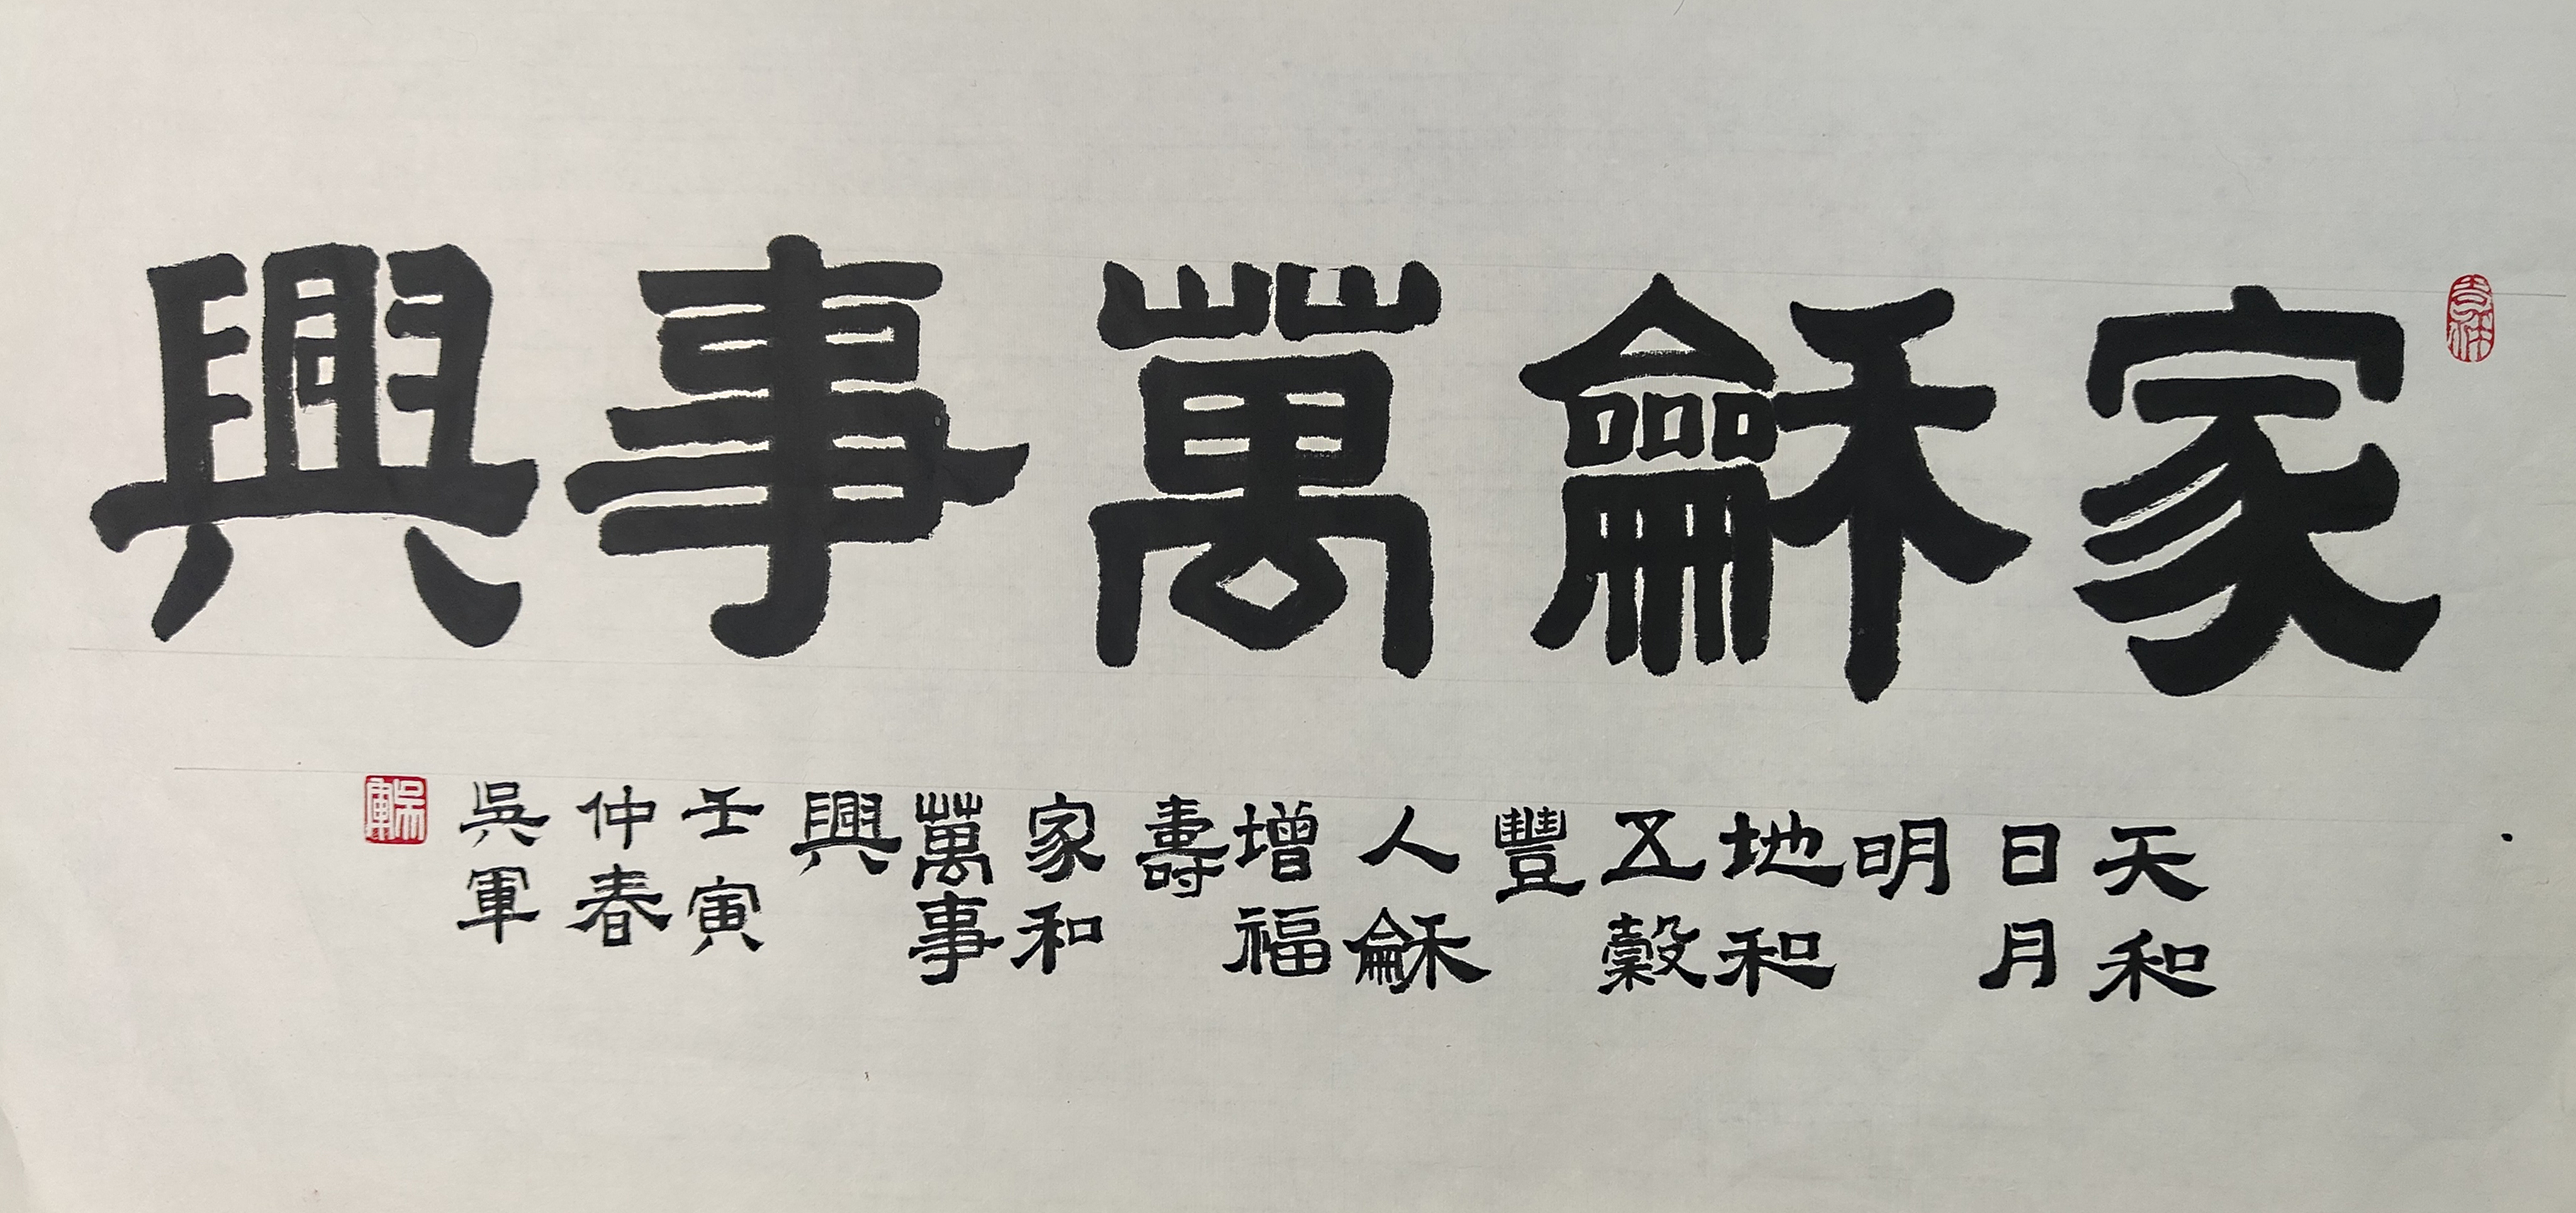 家龢萬事興
天和
日月
明
地和
五穀
豐
人龢
增福
壽
家和
萬事
興
壬寅
仲春
吳軍
吳軍